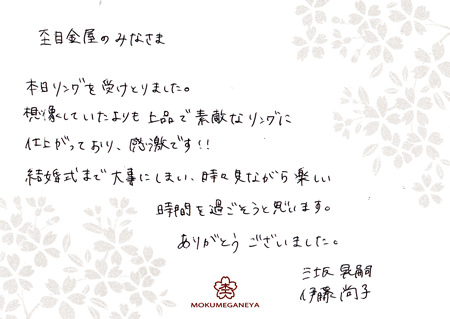 杢目金屋のみなさま
本日リングを受けとりました。
想像していたよりも上品で素敵なリングに
仕上がっており、感激です!!
結婚式まで大事にしまい、時々見ながら楽しい
時間を過ごそうと思います。
ありがとうございました。
伊藤尚子
MOKUMEGANEYA